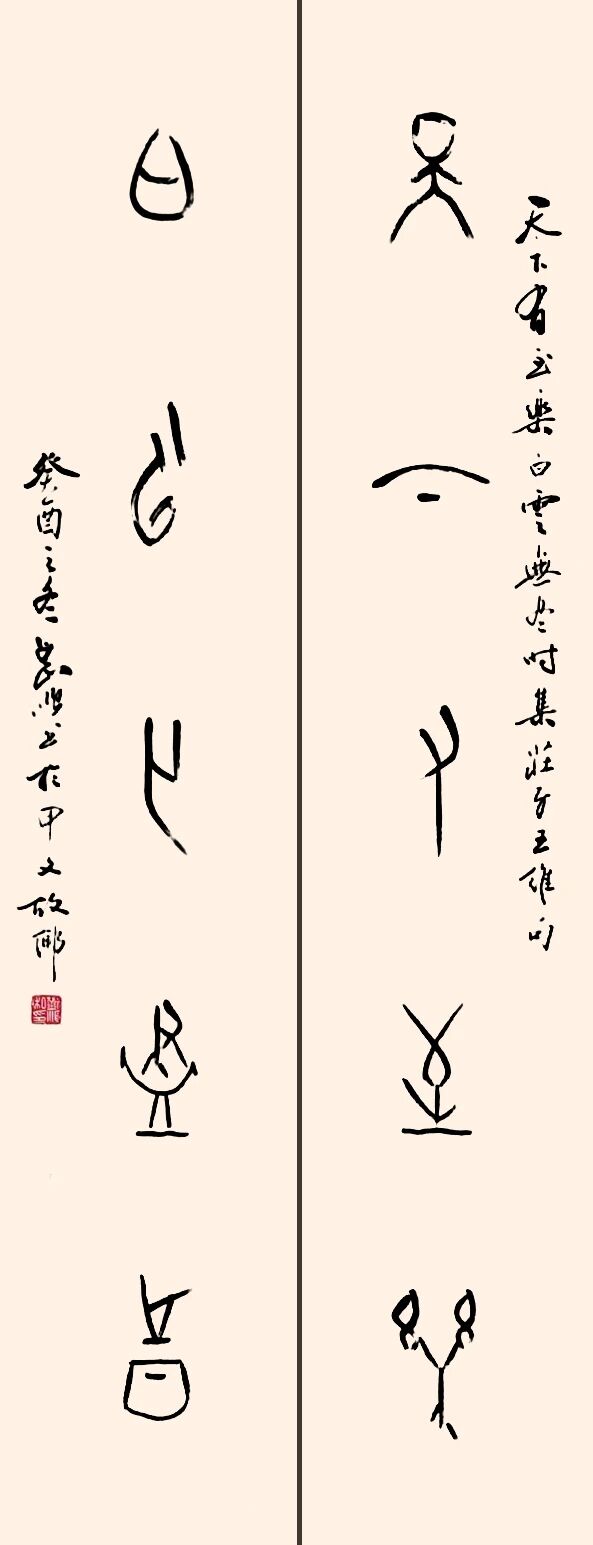 天下有至樂白雲無尽时集莊子王維句
天下有至樂
白雲亡盡時
癸酉之冬书於甲文故鄉